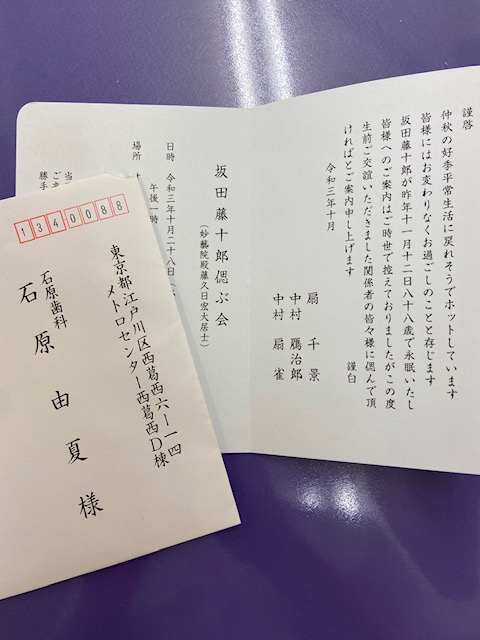 謹啓
仲秋の好季平常生活に戻れそうでホットしています
皆様にはお変わりなくお過ごしのことと存じます
坂田藤十郎が昨年十一月十二日八十八歳で永眠いたし
皆様へのご案内はご時世で控えておりましたがこの度
生前ご交誼いただきました関係者の皆々様に偲んで頂
ければとご案内申し上げます
謹白
令和三年十月
扇千景
中村鴈治郎
中村扇雀
坂田藤十郎偲ぶ会
(妙藝院殿藤久日宏大居士)
日時 令和三年十月二十八日(
午後一時
場所
当
ご
勝手
1340088
東京都江戸川区西葛西六ー一四
メトロセンター西葛西D棟
石原歯科
石原由夏様